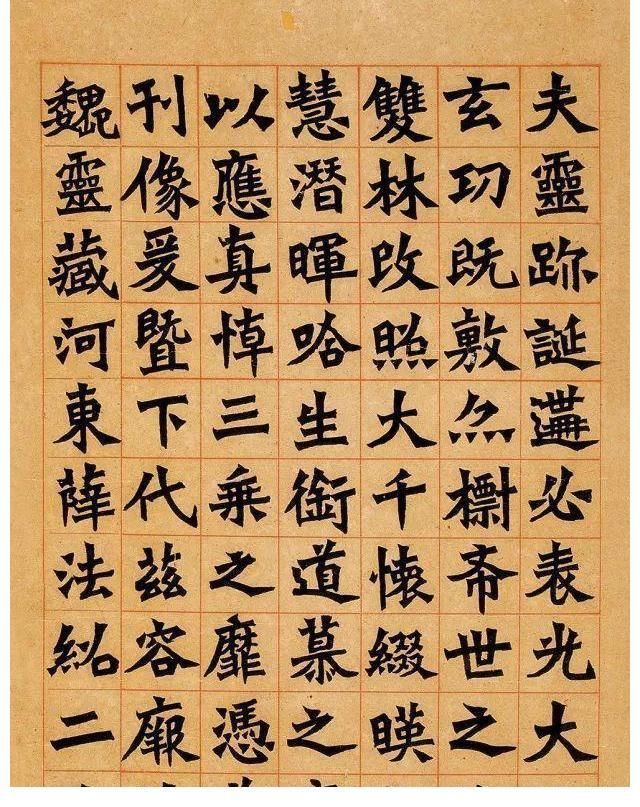 夫靈跡誕遘必表光大
玄功既敷亦標希世之
雙林改照大千懷綴暎
慧潛暉唅生銜道慕之
以應真悼三乘之靡憑
刊像爰暨下代茲容厥
魏靈藏河東薛法紹二